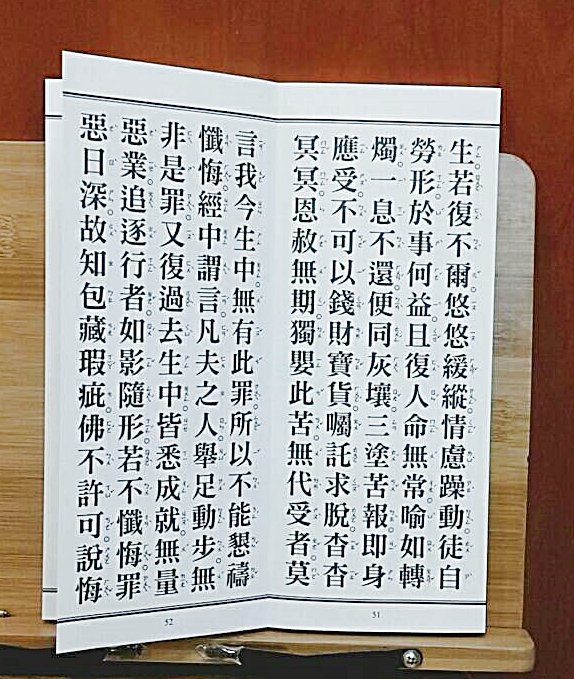 生若復不爾悠悠緩縱情慮躁動徒自
勞形於事何益且復人命無常喻如轉
燭一息不還便同灰壤三塗苦報即身
應受不可以錢財寶貨囑託求脫杳杳
冥冥恩赦無期獨嬰此苦無代受者莫
51
言我今生中無有此罪所以不能懇禱
懺悔經中謂言凡夫之人舉足動步無
非是罪又復過去生中皆悉成就無量
惡業追逐行者如影隨形若不懺悔罪
惡日深故知包藏瑕疵佛不許可說悔
52